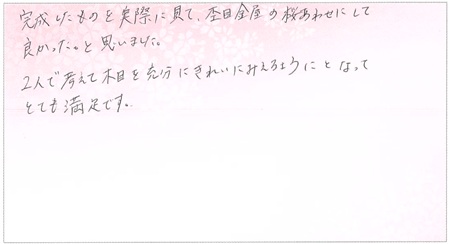 完成したものを実際に見て、杢目金屋の桜あわせにして
良かった。と思いました。
2人で考えて木目を充分にきれいにみえるようにとなって
とても満足です。